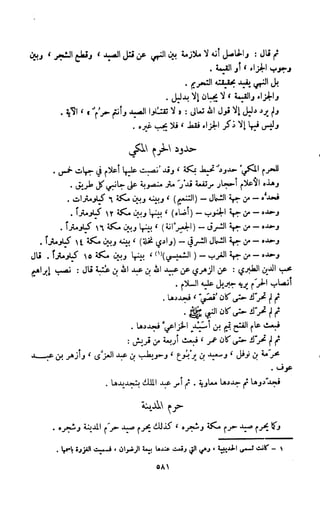 ثم قال : والحاصل أنه لا ملازمة بين النهي عن قتل الصيد ، وقطع الشجر ، وبين
وجوب الجزاء ، أو القيمة .
بل النهي يفيد بحقيقته التحريم .
والجزاء والقيمة ، لا يجبان إلا بدليل .
ولم يرد دليل إلا قول الله تعالى : « لا تقتلوا الصيد وأنتم حرم » ، الآية .
وليس فيها إلا ذكر الجزاء فقط ، فلا يجب غيره .
حدود الحرم المكي
للحرم المكي حدود تحيط بمكة ، وقد نصبت عليها أعلام في جهات خمس .
وهذه الأعلام أحجار مرتفعة قدر متر منصوبة على جانبي كل طريق .
فحده - من جهة الشمال - (التنعيم) ، وبينه وبين مكة ٦ كيلو مترات .
وحده - من جهة الجنوب - (أضاه) ، بينها وبين مكة ١٢ كيلو مترا .
وحده - من جهة الشرق - (الجعرانة) ، بينها وبين مكة ١٦ كيلو مترا .
وحده - من جهة الشمال الشرقي - (وادي نخلة) ، بينه وبين مكة ١٤ كيلو مترا .
وحده - من جهة الغرب - (الشميسي)(١) ، بينها وبين مكة ١٥ كيلو مترا . قال
محب الدين الطبري : عن الزهري عن عبيد الله بن عبد الله بن عتبة قال : نصب إبراهيم
أنصاب الحرم يريه جبريل عليه السلام .
ثم لم تحرك حتى كان قصي ، فجددها .
ثم لم تحرك حتى كان النبي ﷺ .
فبعث عام الفتح تميم بن أسيد الخزاعي فجددها .
ثم لم تحرك حتى كان عمر ، فبعث أربعة من قريش :
محرمة بن نوفل ، وسعيد بن يربوع ، وحويطب بن عبد العزى ، وأزهر بن عبد
عوف .
فجددوها ثم جددها معاوية . ثم أمر عبد الملك بتجديدها .
حرم المدينة
وكما يحرم صيد حرم مكة وشجره ، كذلك يحرم صيد حرم المدينة وشجره .
١ - كانت تسمى الحديبية ، وهي التي وقعت عندها بيعة الرضوان ، فسميت الغزوة باسمها .
٥٨١